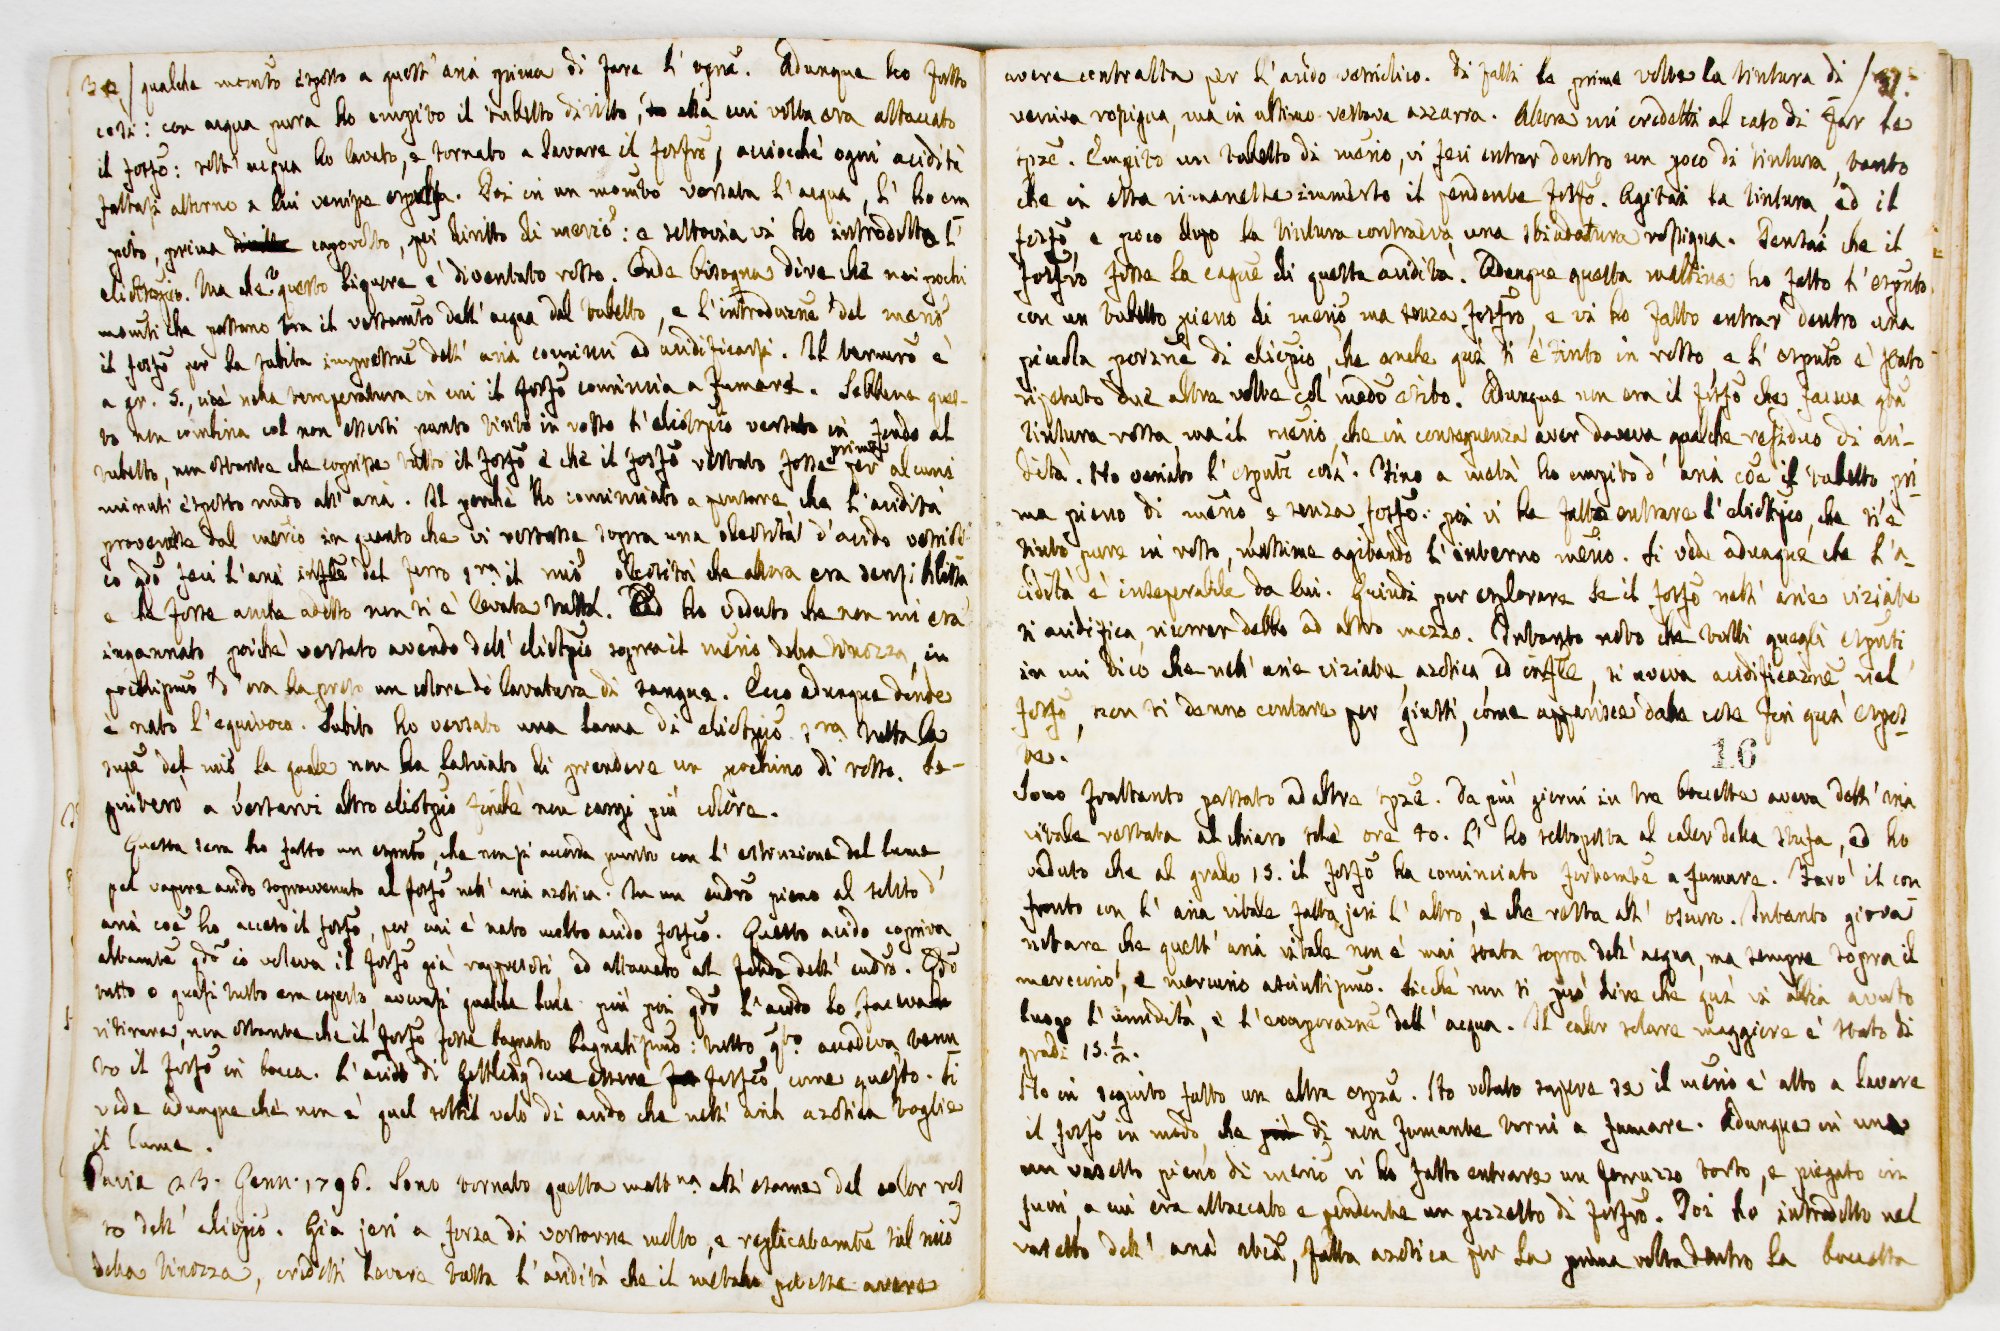 30/ qualche momto esposto a quest' aria prima di fare l' espze. Adunque ho fatto
così: con acqua pura ho empito il tubetto diritto, alla cui volta era attaccato
il fosfo: nell' acqua ho lavato, e tornato a lavare il fosfro, acciocchè ogni acidità
fattasi attorno a lui venisse espulsa. Poi in un momto versata l' acqua, l' ho em
pito, prima capovolto, poi diritto di merio: e tuttavia vi ho introdotto l'
eliotropio. Ma che? questo liquore è diventato rosso. Onde bisogna dire che nei pochi
momti che passano tra il versamto dell' acqua dal tubetto, e l' introduzne del merio
il fosfo per la subita impressne dell' aria cominci ad acidificarsi. Il termro è
a gr. 5., cioè nella temperatura in cui il fosfo comincia a fumare. Sebbene ques-
to non combina col non essersi punto tinto in rosso l' eliotrpio versato in fondo al
tubetto, non ostante che coprisse tutto il fosfo, e che il fosfo restato fosse prima per alcuni
minuti esposto nudo all' aria. Il perchè ho cominciato a pensare che l' acidità
provenisse dal merio in quanto che vi restasse sopra una oleosità d' acido vetrioli
co qdo feci l' aria infle del ferro sra il mio oleosità che allora era sensibilissa
e che forse anche adesso non si è levata tutta. Ed ho veduto che non mi era
ingannato poichè versato avendo dell' eliotpio sopra il merio della tinozza, in
pochissmo d' ora ha preso un colore di lavatura di sangue. Ecco adunque donde
è nato l' equivoco. Subito ho versato una lama di eliotpio sra tutta la
supe del mio, la quale non ha lasciato di prendere un pochino di rosso. Se-
guiterò a versarvi altro eliotpio finchè non cangi più colore.
Questa sera ho fatto un espmto, che non si accorda punto con l' estinzione del lume
pel vapore acido sopravvenuto al fosfo nell' aria azotica. In un cudro pieno al solito d'
aria coe ho acceso il fosfo, per cui è nato molto acido fosfco. Questo acido copriva
altamte qdo io voleva il fosfo già rappresosi ed attaccato al fondo dell' cudro. Qdo
tutto o quasi tutto era coperto, aveasi qualche luce più poi qdo l' acido lo faceva
ritirare, non ostante che il fosfo fosse bagnato bagnatissmo: tutto qto accadeva tenu
to il fosfo in bocca. L' acido di Gottling deve essere fosfco, come questo. Si
vede adunque che non è quel sottil velo di acido che nell' aria azotica toglie
il lume.
Pavia 23. Genn. 1796. Sono tornato questa mattna all' esame del color ros
so dell' eliopio. Già jeri a forza di versarne molto, e replicatamte sul mio
della tinozza, credetti levare tutta l' acidità che il metallo potesse avere
avere contratta per l' acido vetriolico. Di fatti le prime volte la tintura di /31.
veniva rossigna, ma in ultimo restava azzurra. Allora mi credetti al caso di far le
spze. Empito un tubetto di merio, vi feci entrar dentro un poco di tintura, tanto
che in essa rimanesse immerso il pendente fosfo. Agitai la tintura, ed il
fosfo e poco dopo la tintura contraeva una sbiadatura rossigna. Pensai che il
fosfro fosse la cagne di questa acidità. Adunque questa mattina ho fatto l' espmto
con un tubetto pieno di merio ma senza fosfro, e vi ho fatto entrar dentro una
piccola porzne di eliopio, che anche qui si è tinto in rosso, e l' espmto è stato
ripetuto due altre volte col medo esito. Adunque non era il fosfo che faceva qta
tintura rossa ma il merio, che in conseguenza aver doveva qualche residuo di aci-
dità. Ho variato l' espmto così. Fino a metà ho empito d' aria coe il tubetto pri
ma pieno di merio, e senza fosfo: poi vi ho fatto entrare l' eliotpio, che si è
tinto pure in rosso, massime agitando l' interno merio. Si vede adunque che l' a-
cidità è inseparabile da lui. Quindi per esplorare se il fosfo nell' arie viziate
si acidifica, ricorrer debbo ad altro mezzo. Intanto noto che tutti quegli espmti
in cui dico che nell' arie viziate, azotica ed infle, si aveva acidificazne nel
fosfo, non si denno contare per giusti, come apparisce dalle cose fin quà espos-
te.
16
Sono frattanto passato ad altre spze. Da più giorni in tre boccette aveva dell' aria
vitale restata al chiaro sole ore 40. L' ho sottoposta al calor della stufa, ed ho
veduto che al grado 15. il fosfo ha cominciato fortemte a fumare. Farò il con
fronto con l' aria vitale fatta jeri l' altro, e che resta all' oscuro. Intanto giova
notare, che quest' aria vitale non è mai stata sopra dell' acqua, ma sempre sopra il
mercurio, e mercurio asciuttissmo. Sicchè non si può dire che quì vi abbia avuto
luogo l' umidità, e l' evaporazne dell' acqua. Il calor solare maggiore è stato di
gradi 15.½.
Ho in seguito fatto un altra espza. Ho voluto sapere se il merio è atto a lavare
il fosfo in modo, che di non fumante torni a fumare. Adunque in un
un vasetto pieno di merio vi ho fatto entrare un ferruzzo torto, e piegato in
fuori, a cui era attaccato e pendente un pezzetto di fosfro. Poi ho introdotto nel
vasetto dell' aria stea, fatta azotica per la prima volta dentro la boccetta